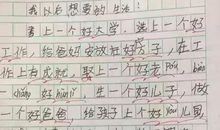 我以后想要的生活!
考上一个好大学,选上一个好
工作,给爸妈安放好房子,在工
作上有成就,娶上一个好老pó,bàn
一chǎng好hūnlǐ,生一个好儿子,做
一个好爸爸,给孩子上个好yòu儿园,